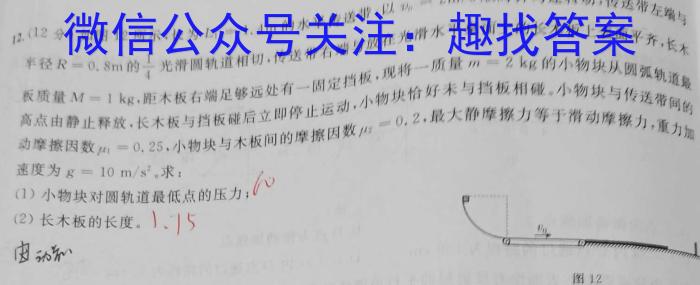 微信公众号关注：趣找答案
12.(12分
传送带左端与
半径R=0.8m的1/4光滑圆轨道相切,传送带右端
平齐,长木
板质量M=1kg,距木板右端足够远处有一固定挡板,现将一质量m=2kg的小物块从圆弧轨道最
高点由静止释放,长木板与挡板碰后立即停止运动,小物块恰好未与挡板相碰。小物块与传送带间的
动摩擦因数μ₁=0.25,小物块与木板间的摩擦因数μ₂=0.2,最大静摩擦力等于滑动摩擦力,重力加
速度为g=10m/s²。求:
(1)小物块对圆轨道最低点的压力;60
(2)长木板的长度。1.75
由动
v₀
图12